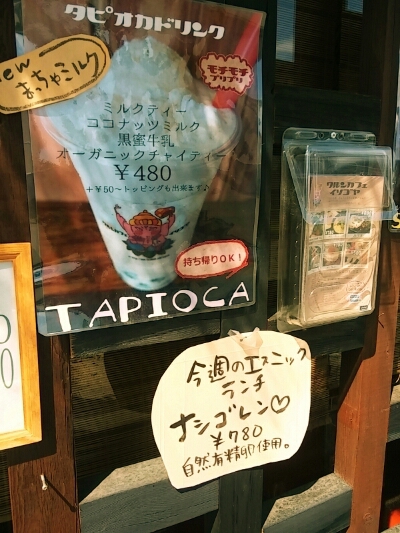 タピオカドリンク
new
まっちゃミルク
モチモチ
プリプリ
ミルクティー
ココナッツミルク
黒蜜牛乳
オーガニックチャイティー
¥480
+¥50~トッピングも出来ます♪
持ち帰りOK!
TAPIOCA
今週のエスニック
ランチ
ナシゴレン♡
¥780
自然有精卵使用。